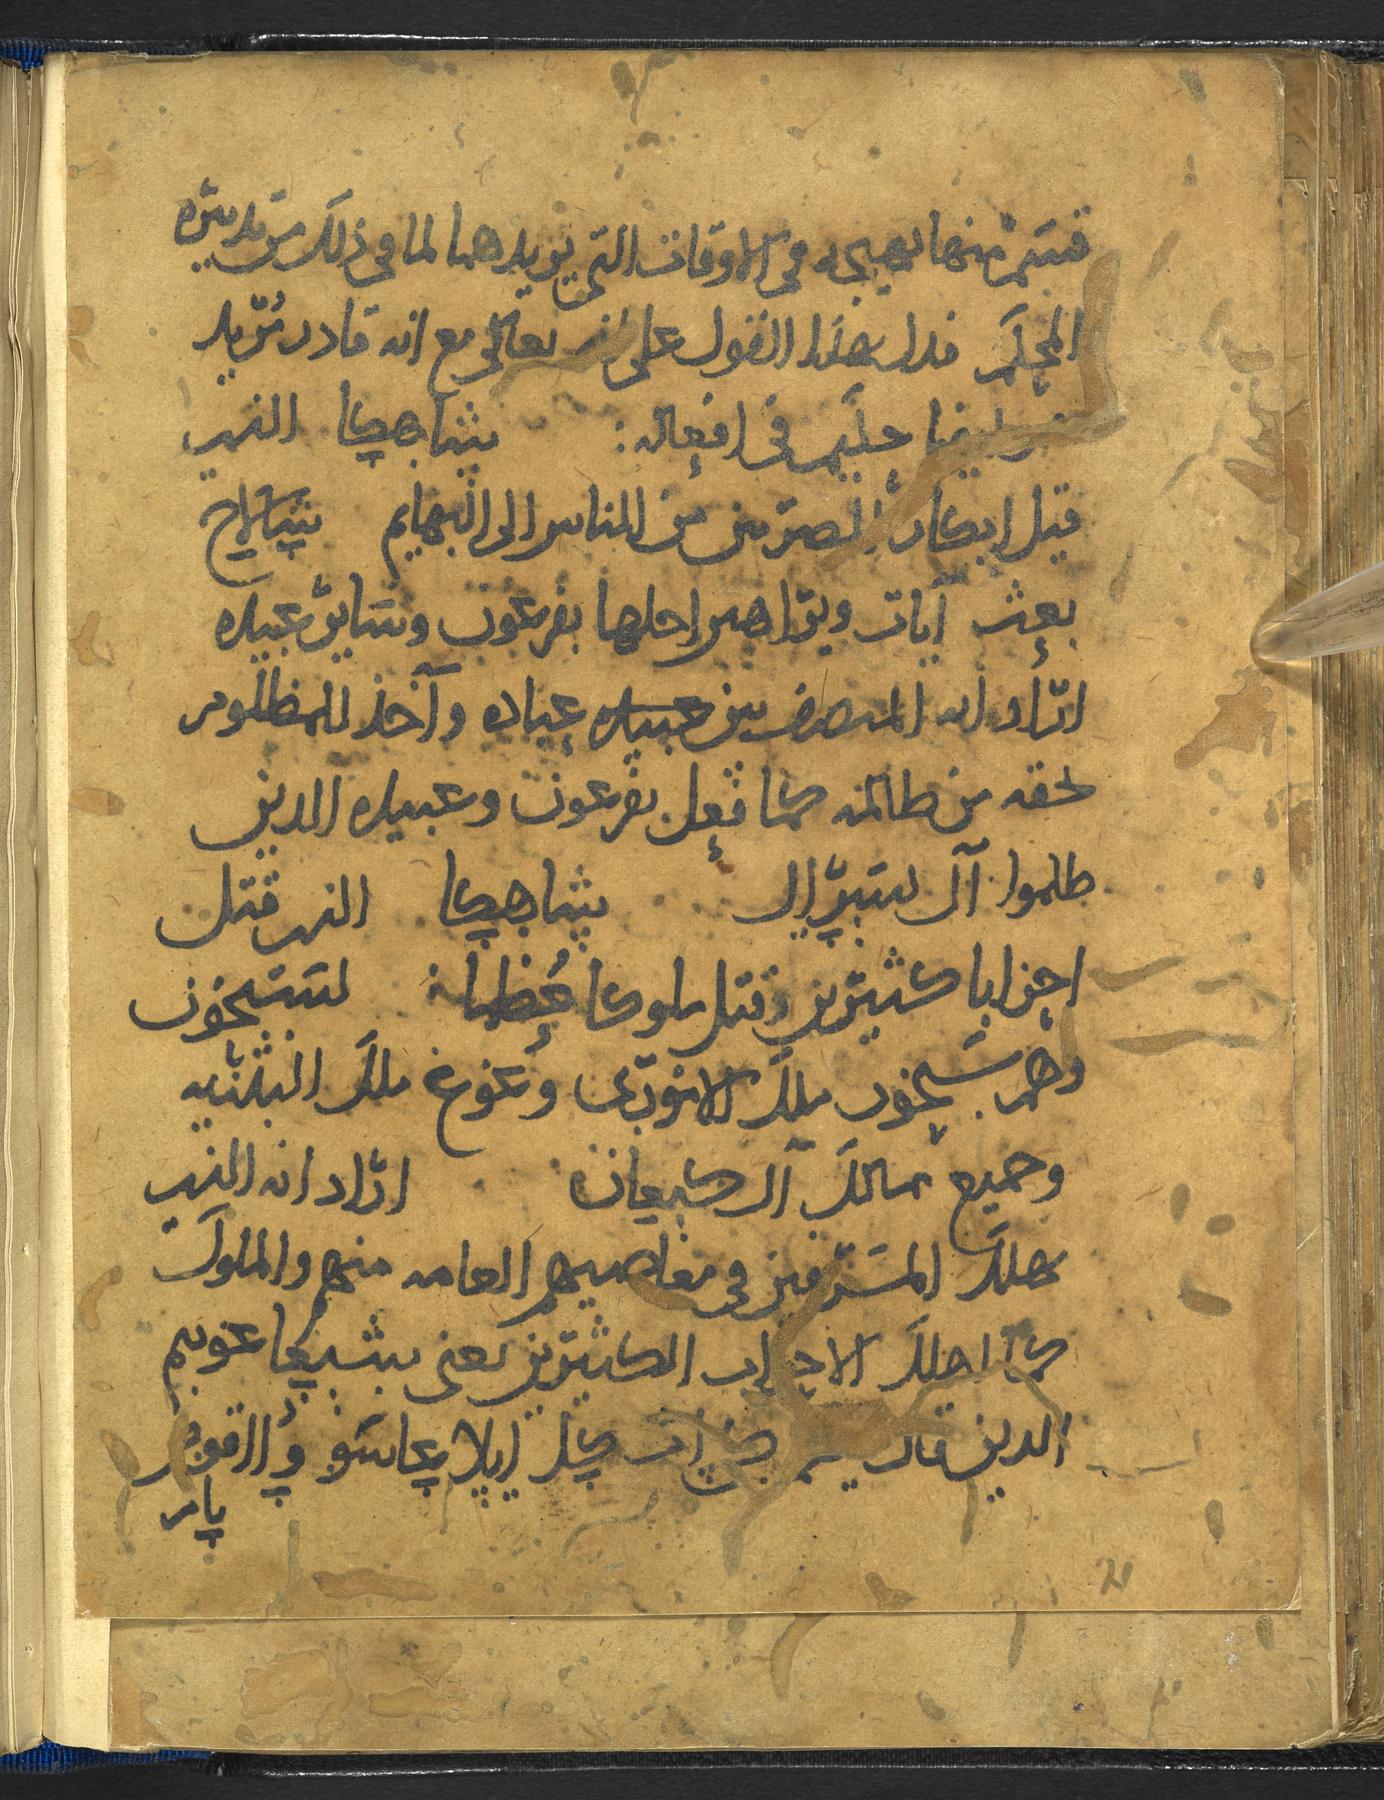 فيتم منها بهيجه في الاوقات التي يريدها لما في ذلك من تدبيره
المحكم فدل هذا القول على انه تعالى مع انه قادر مريد
حكيم في افعاله: شاهكا الذي
قتل ابكار المصريين من الناس الى البهايم شالاح
بعث آيات وبراهين احلها بفرعون وساير عبيده
اراد انه المنصف بين عبيده عباده وآخذ للمظلوم
بحقه من ظالمه كما فعل بفرعون وعبيده الذين
ظلموا آل يسرايل شاهكا الذي قتل
احزابا كثيرين وقتل ملوكا عظما: لسيحون
وهم سيحون ملك الاموري وعوغ ملك البثنيه
وجميع ممالك آل كنعان اراد انه الذي
هلك المسرفين في معاصيهم العامه منهم والملوك
كما اهلك الاحزاب الكثيرين يعني شبعا عوييم
الذين قال كي ات كل ايلا يعاسو والقوم
يام